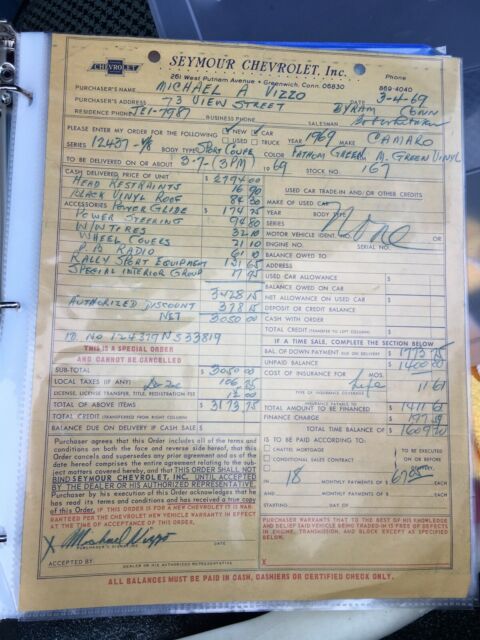 CHEVROLET
SEYMOUR CHEVROLET, Inc.
261 West Putnam Avenue • Greenwich, Conn. 06830
Phone
869-4040
PURCHASER'S NAME MICHAEL A VIZZO
PURCHASER'S ADDRESS 73 VIEW STREET BYRAM CONN DATE 3-4-69
RESIDENCE PHONE JE1-7987 BUSINESS PHONE SALESMAN
PLEASE ENTER MY ORDER FOR THE FOLLOWING NEW CAR YEAR 1969 MAKE CAMARO
USED TRUCK
SERIES 12437-V8 BODY TYPE SPORT COUPE COLOR FATHOM GREEN, M. GREEN VINYL
TO BE DELIVERED ON OR ABOUT 3-7-(3PM) 1969 STOCK NO. 167
CASH DELIVERED PRICE OF UNIT $ 2794.00
HEAD RESTRAINTS 16 90
BLACK VINYL ROOF 84 30
ACCESSORIES POWERGLIDE $ 174 25
POWER STEERING 94 80
W/W TIRES 32 10
WHEEL COVERS 21 10
P B RADIO 61 10
RALLY SPORT EQUIPMENT 131 65
SPECIAL INTERIOR GROUP 17 95
3428 15
AUTHORIZED DISCOUNT 378 15
NET 3050 00
ID NO 124379N533819
THIS IS A SPECIAL ORDER
AND CANNOT BE CANCELLED
SUB-TOTAL $ 3050 00
LOCAL TAXES (IF ANY) 106 75
LICENSE, LICENSE TRANSFER, TITLE, REGISTRATION FEE 17 00
TOTAL OF ABOVE ITEMS $ 3173 75
TOTAL CREDIT (TRANSFERRED FROM RIGHT COLUMN)
BALANCE DUE ON DELIVERY IF CASH SALE $
Purchaser agrees that this Order includes all of the terms and
conditions on both the face and reverse side hereof, that this
Order cancels and supersedes any prior agreement and as of the
date hereof comprises the entire agreement relating to the sub-
ject matters covered hereby, and that THIS ORDER SHALL NOT
BIND SEYMOUR CHEVROLET, INC. UNTIL ACCEPTED
BY THE DEALER OR HIS AUTHORIZED REPRESENTATIVE.
Purchaser by his execution of this Order acknowledges that he
has read its terms and conditions and has received a true copy
of this Order. IF THIS ORDER IS FOR A NEW VEHICLE IT IS WAR-
RANTEED PER THE CHEVROLET NEW VEHICLE WARRANTY IN EFFECT
AT THE TIME OF ACCEPTANCE OF THIS ORDER.
X Michael Vizzo
PURCHASER'S SIGNATURE DATE
ACCEPTED BY:
DEALER OR HIS AUTHORIZED REPRESENTATIVE
USED CAR TRADE-IN AND/OR OTHER CREDITS
MAKE OF USED CAR
YEAR BODY TYPE
SERIES None
MOTOR VEHICLE IDENT. NO.
ENGINE NO. SERIAL NO.
BALANCE OWED TO
ADDRESS
USED CAR ALLOWANCE $
BALANCE OWED ON CAR $
NET ALLOWANCE ON USED CAR $
DEPOSIT OR CREDIT BALANCE
CASH WITH ORDER
TOTAL CREDIT (TRANSFER TO LEFT COLUMN) $
IF A TIME SALE, COMPLETE THE SECTION BELOW
BAL. OF DOWN PAYMENT DUE ON DELIVERY $ 1773 75
UNPAID BALANCE $ 1400 00
COST OF INSURANCE FOR MOS. Life 11 61
TYPE OF INSURANCE COVERAGE
INSURANCE PAYABLE TO
TOTAL AMOUNT TO BE FINANCED $ 1411 61
FINANCE CHARGE $
TOTAL TIME BALANCE OF $ 1609 20
IS TO BE PAID ACCORDING TO:
CHATTEL MORTGAGE TO BE EXECUTED
CONDITIONAL SALES CONTRACT ON OR BEFORE
IN 18 MONTHLY PAYMENTS OF $ EACH
AND MONTHLY PAYMENTS OF $ EACH
STARTING DAY OF
PURCHASER WARRANTS THAT TO THE BEST OF HIS KNOWLEDGE
AND BELIEF SAID VEHICLE BEING TRADED-IN IS FREE OF DEFECTS
IN ENGINE, TRANSMISSION, AND BLOCK EXCEPT AS SPECIFIED
BELOW:
X
ALL BALANCES MUST BE PAID IN CASH, CASHIERS OR CERTIFIED CHECK ONLY.